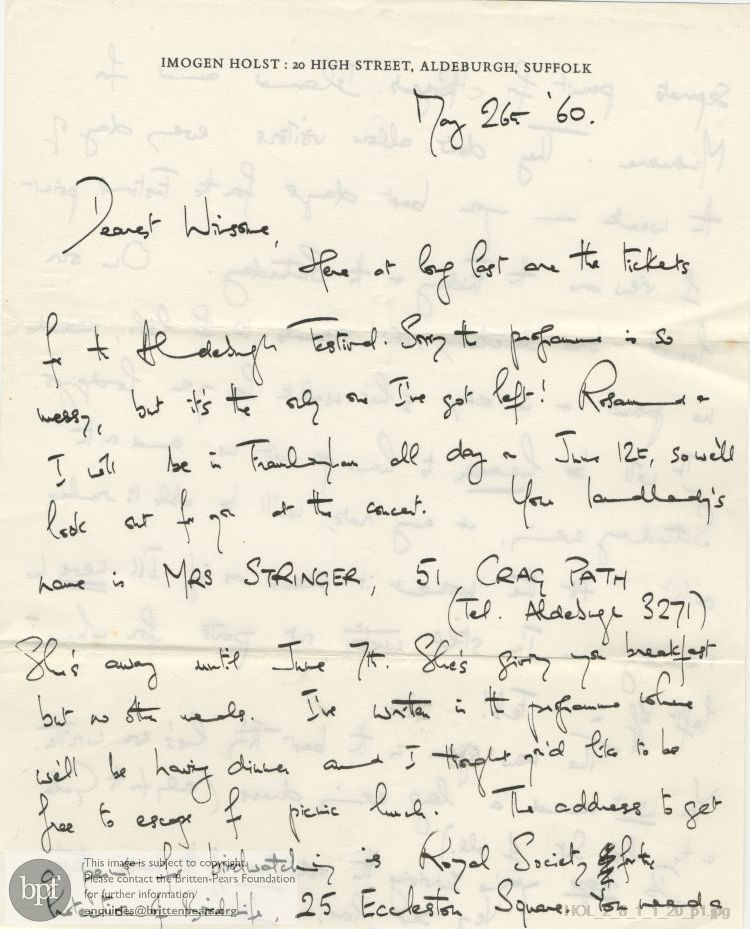 IMOGEN HOLST : 20 HIGH STREET, ALDEBURGH, SUFFOLK
May 26th '60.
Dearest Winsome,
Here at long last are the tickets
for the Aldeburgh Festival. Sorry the programme is so
messy, but it's the only one I've got left! Rosamund &
I will be in Framlingham all day on June 12th, so we'll
look out for you at the concert. Your landlady's
name is MRS STRINGER, 51 CRAG PATH
(Tel. Aldeburgh 3271)
She's away until June 7th. She's giving you breakfast
but no other meals. I've written in the programme where
we'll be having dinner and I thought you'd like to be
free to escape for picnic lunch. The address to get
a permit for birdwatching is Royal Society for the
Protection of Birds, 25 Eccleston Square. You need a
bpf
This image is subject to copyright.
Please contact the Britten-Pears Foundation
for further information
enquiries@brittenpears.org
HOL_2_8_1_1_20_p1.jpg